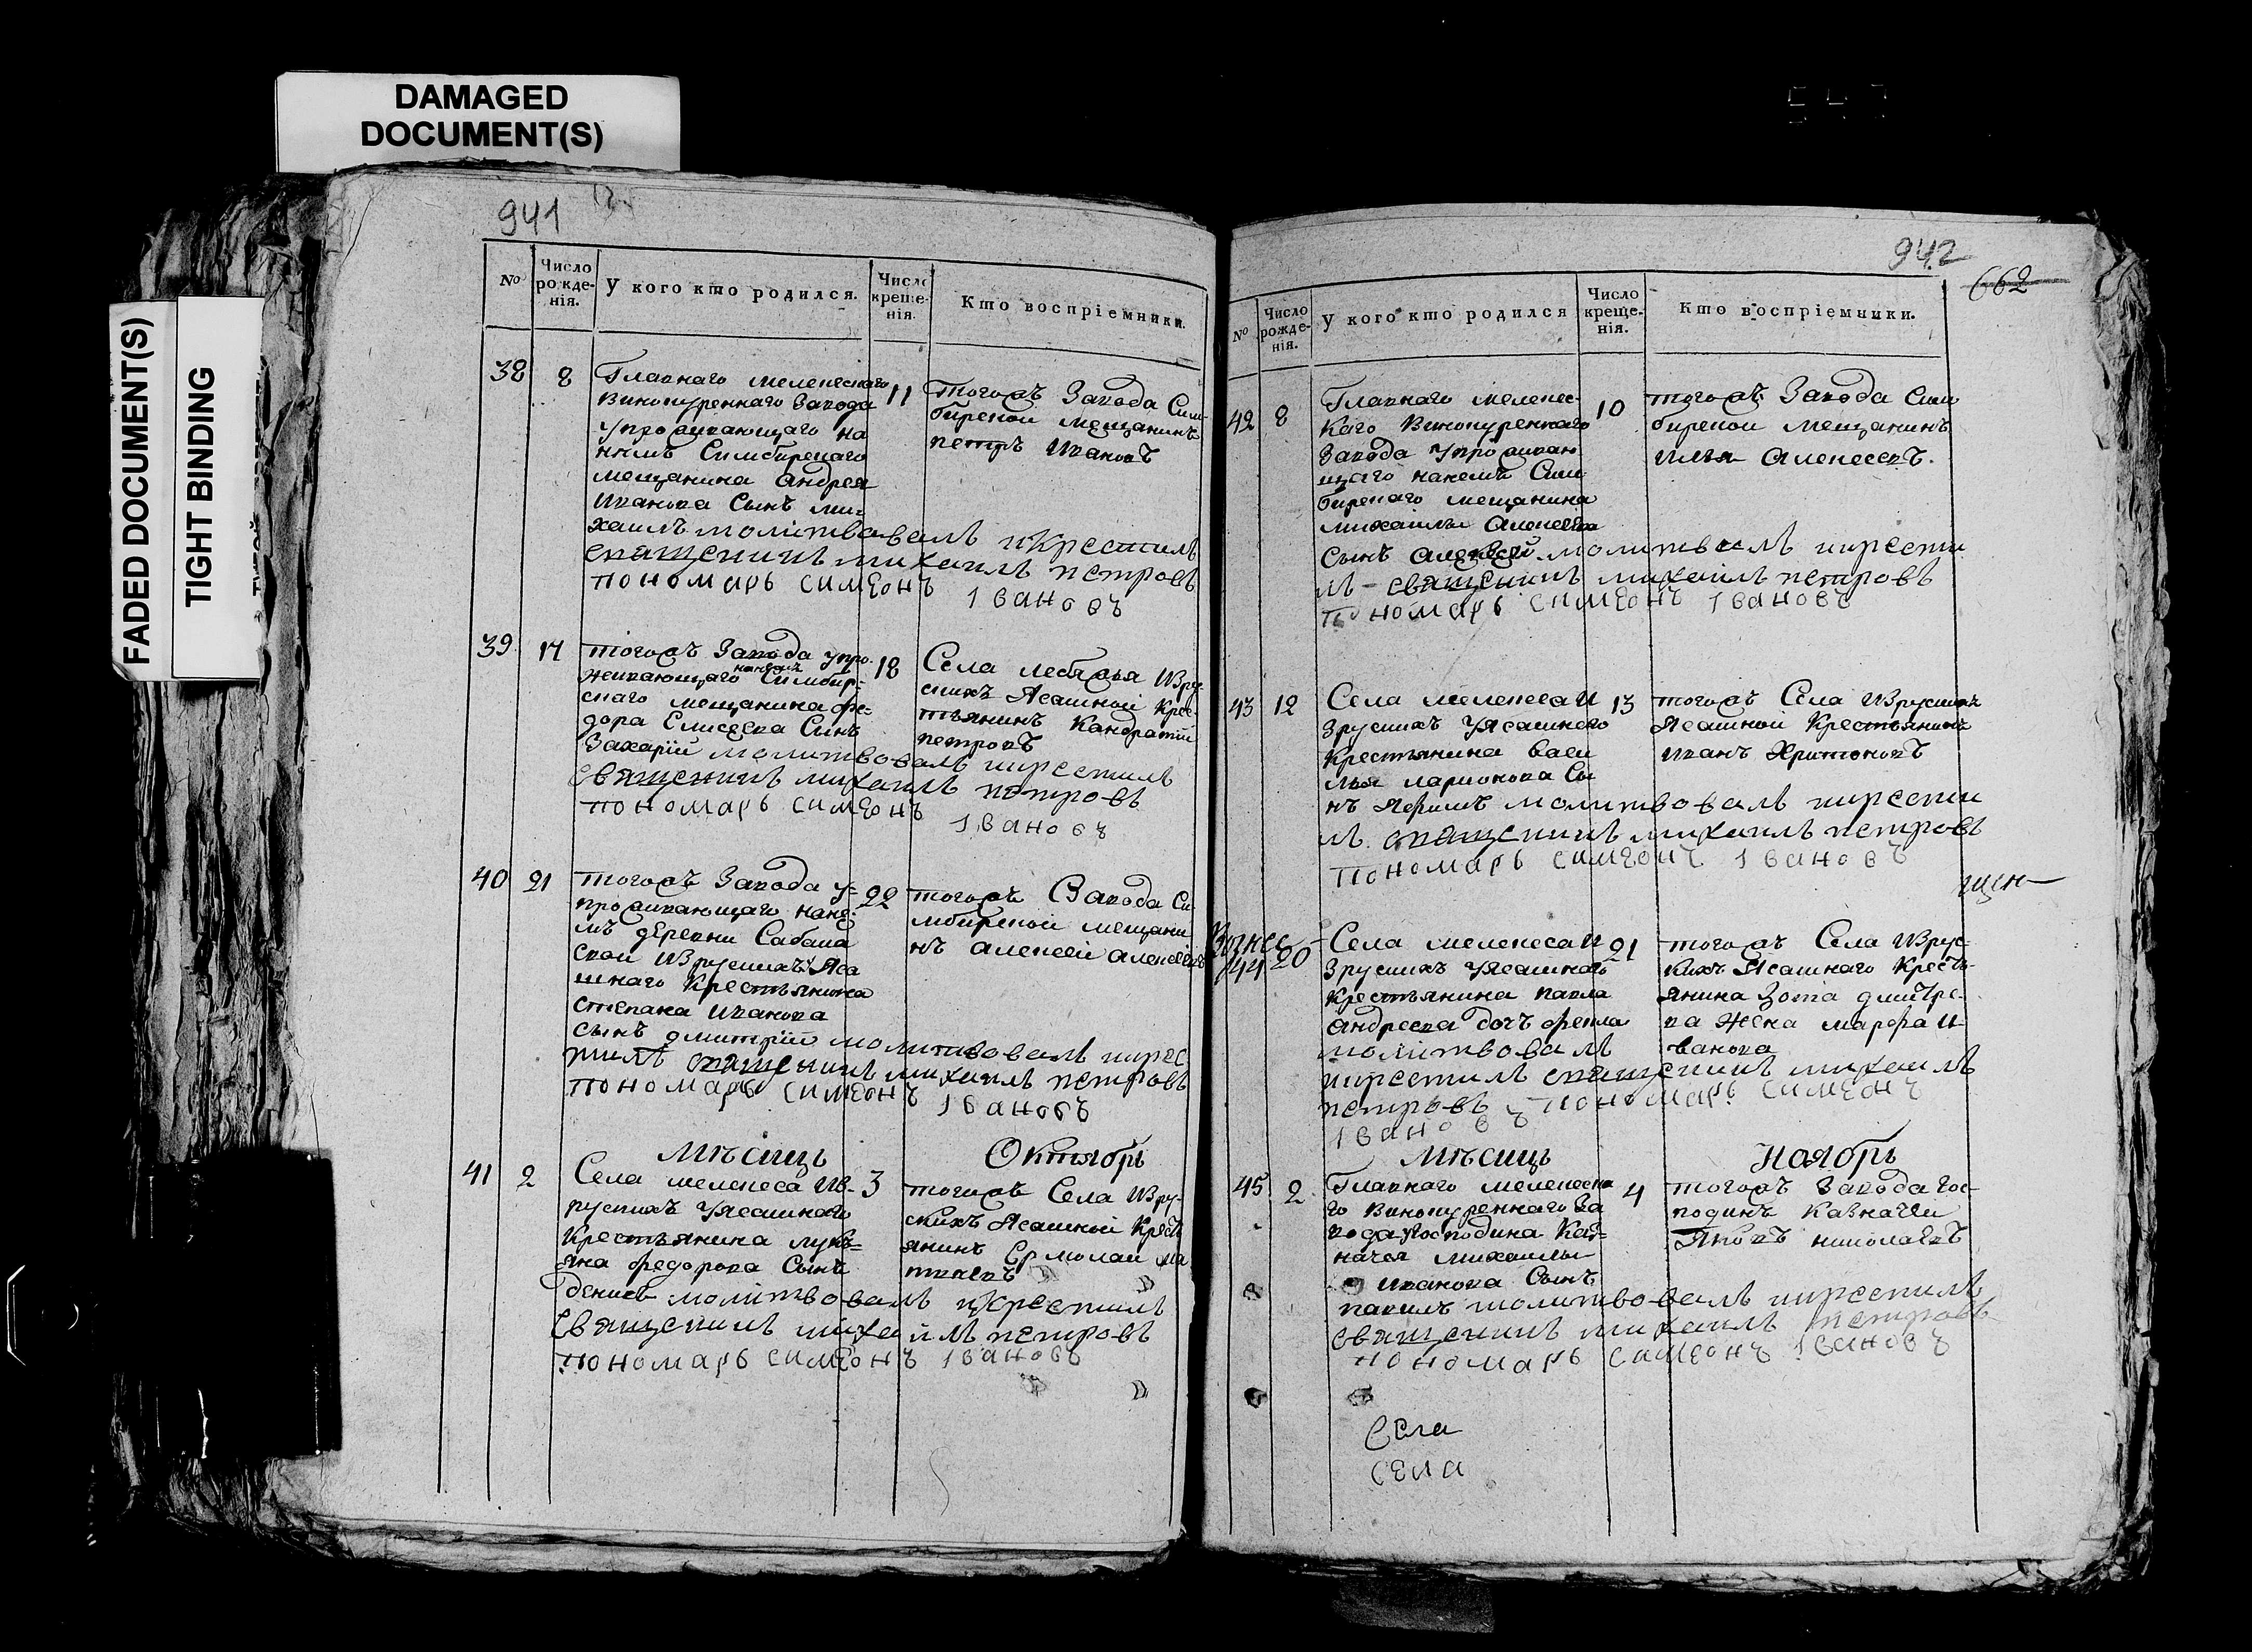 DAMAGED
DOCUMENT(S)
FADED DOCUMENT(S)
TIGHT BINDING
941
№
Число рожде-нія.
У кого кто родился.
Число креще-нія.
Кто воспріемники.
38
8
Главнаго мелекескаго
винокуреннаго завода
упроживающаго на
нямъ Симбирскаго
мещанина андрея
иванова Сынъ ми-
хаилъ молитвовалъ икрестилъ
священникъ михаилъ петровъ
пономарь симеонъ Iвановъ
11
тогожъ Завода Сим-
бирской мещанинъ
петръ ивановъ
39
17
тогожъ Завода упро-
живающаго нанемъ Симбир-
скаго мещанина фе-
дора Елисеева Сынъ
Захарій молитвовалъ икрестилъ
священникъ михаилъ петровъ
пономарь симеонъ
Iвановъ
18
Села лебяжья Изру-
скихъ Ясашной крес-
тьянинъ Кандратій
петровъ
40
21
тогожъ Завода у-
проживающаго нане-
мъ деревни Сабака
скои Изрускихъ Уяса
шнаго Крестьянина
степана иванова
сынъ дмитрій молитвовалъ икрес
тилъ священникъ михаилъ петровъ
пономарь симеонъ
Iвановъ
22
тогожъ Завода Си
мбирской мещани
нъ алексей алексеевъ
Мѣсяць Октябрь
41
2
Села мелекеса Из-
рускихъ Уясашнаго
Крестьянина лукь-
яна федорова Сынъ
денисъ молитвовалъ икрестилъ
священникъ михаилъ петровъ
пономарь симеонъ Iвановъ
3
тогожъ Села Изру-
скихъ Ясашной Кресть
янинъ Ермолай ма
твеевъ
942
662
№
Число рожде-нія.
У кого кто родился
Число креще-нія.
Кто воспріемники.
42
8
Главнаго мелекес-
каго Винокуреннаго
Завода упроживаю
щаго нанемъ Сим
бирскаго мещанина
михаилы алексеева
сынъ алексей молитвовалъ икрести
лъ - священникъ михаилъ петровъ
пономарь симеонъ Iвановъ
10
тогожъ Завода Сим
бирской мещанинъ
илья алексеевъ.
43
12
Села мелекеса И
зрускихъ Уясашнаго
Крестьянина васи
лья ларионова Сы
нъ молитвовалъ икрести
лъ. священникъ михаилъ петровъ
пономарь симеонъ Iвановъ
13
тогожъ Села Изрускихъ
Ясашной Крестьянинъ
иванъ Харитоновъ
44
20
Села мелекеса И
зрускихъ Уясашнаго
крестьянина павла
андреева дочь фекла
молитвовалъ
икрестилъ священникъ михаилъ
петровъ пономарь симеонъ
Iвановъ
21
тогожъ Села Изрус-
кихъ Ясашнаго Кресть-
янина Зота дмитре-
ва жена марфа И-
ванова
Мѣсяць Ноябрь
45
2
Главнаго мелекеска
го Винокуреннаго За
вода Угосподина Каз-
начея михаилы
иванова Сынъ
павилъ молитвовалъ икрестилъ
священникъ михаилъ петровъ
пономарь симеонъ Iвановъ
4
тогожъ Завода гос-
подинъ Казначеи
Яковъ николаевъ
Села
села